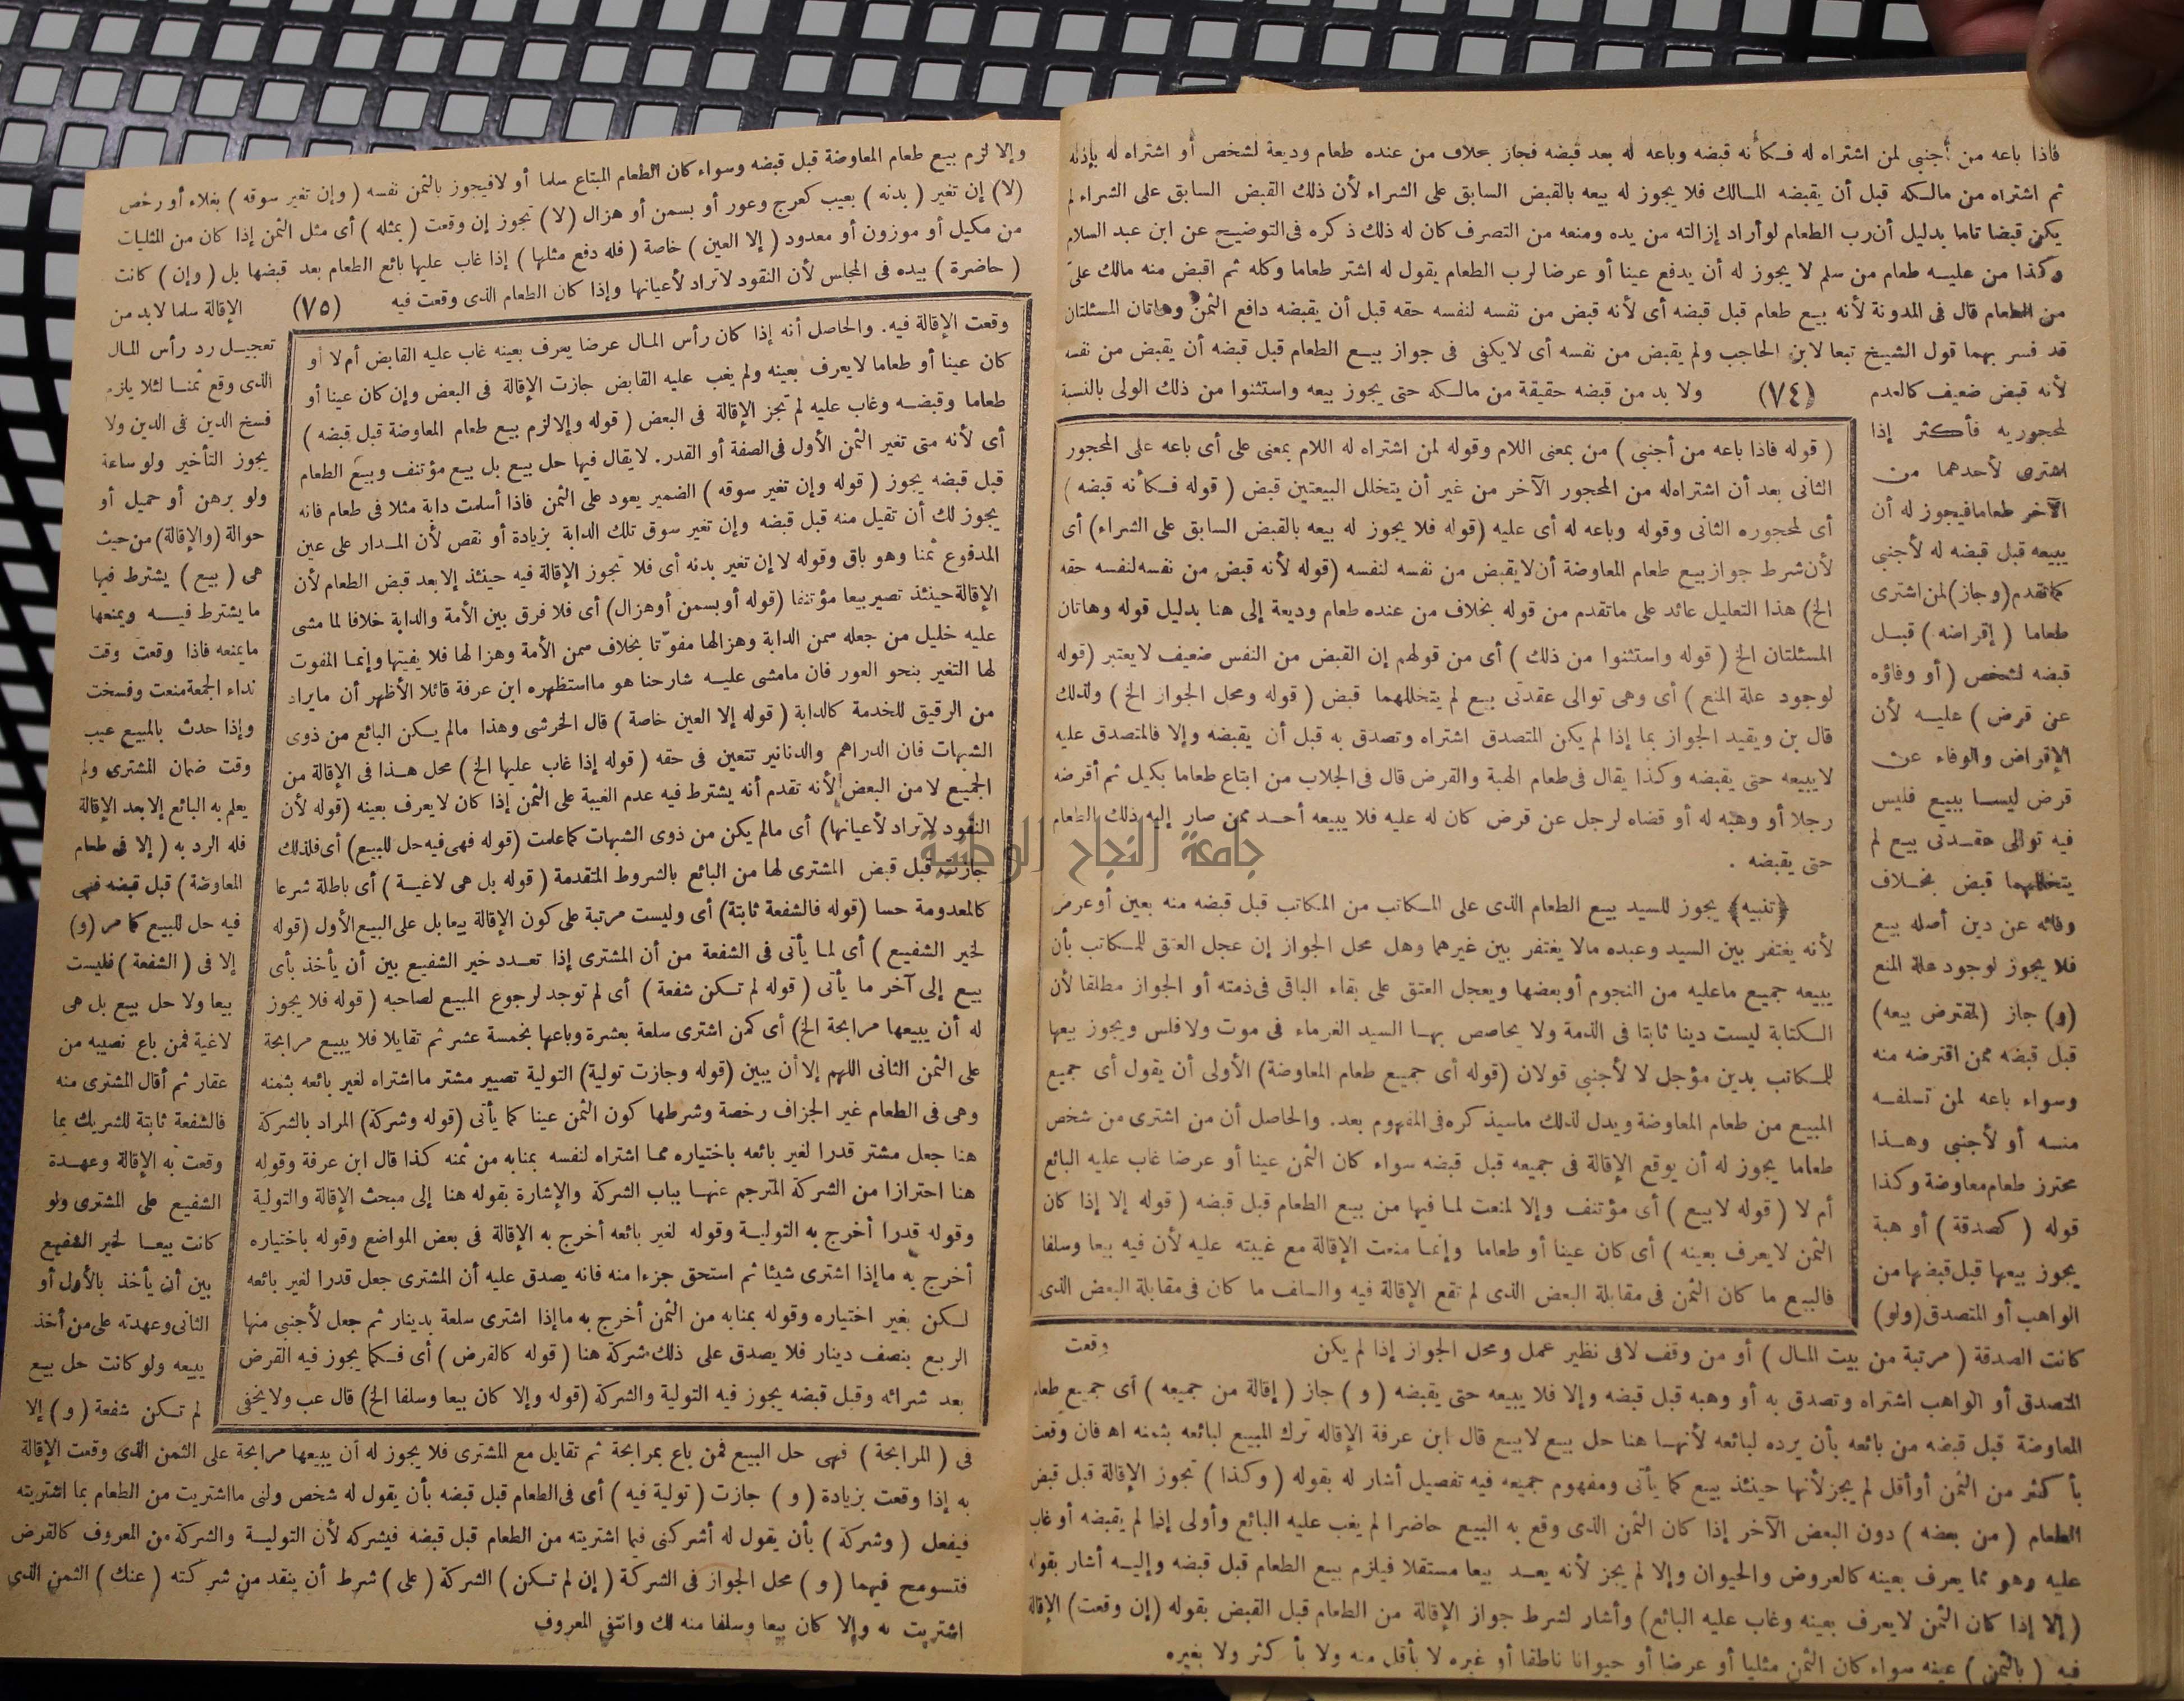 فاذا باعه من أجنبى لمن اشتراه له فكأنه قبضه وباعه له بعد قبضه فجاز بخلاف من عنده طعام وديعة لشخص أو اشتراه له بإذنه
ثم اشتراه من مالكه قبل أن يقبضه المالك فلا يجوز له بيعه بالقبض السابق على الشراء لأن ذلك القبض السابق على الشراء لم
يكن قبضا تاما بدليل أن رب الطعام لو أراد إزالته من يده ومنعه من التصرف كان له ذلك ذكره فى التوضيح عن ابن عبد السلام
وكذا من عليه طعام من سلم لا يجوز له أن يدفع عينا أو عرضا لرب الطعام يقول له اشتر طعاما وكله ثم اقبض منه مالك علىّ
من الطعام قال فى المدونة لأنه بيع طعام قبل قبضه أى لأنه قبض من نفسه لنفسه حقه قبل أن يقبضه دافع الثمن وهاتان المسئلتان
قد فسر بهما قول الشيخ تبعا لابن الحاجب ولم يقبض من نفسه أى لا يكفى فى جواز بيع الطعام قبل قبضه أن يقبض من نفسه
لأنه قبض ضعيف كالعدم (٧٤) ولا بد من قبضه حقيقة من مالكه حتى يجوز بيعه واستثنوا من ذلك الولى بالنسبة
لمحجوريه فأكثر إذا
اشترى لأحدهما من
الآخر طعاما فيجوز له أن
يبيعه قبل قبضه له لأجنبى
كما تقدم (و جاز) لمن اشترى
طعاما (إقراضه) قبل
قبضه لشخص (أو وفاؤه
عن قرض) عليه لأن
الإقراض والوفاء عن
قرض ليسا ببيع فليس
فيه توالى عقدتى بيع لم
يتخللهما قبض بخلاف
وفائه عن دين أصله بيع
فلا يجوز لوجود علة المنع
(و) جاز (لمقترض بيعه)
قبل قبضه ممن اقترضه منه
وسواء باعه لمن تسلفه
منه أو لأجنبى وهذا
محترز طعام معاوضة وكذا
قوله (كصدقة) أو هبة
يجوز بيعها قبل قبضها من
الواهب أو المتصدق (ولو)
(قوله فاذا باعه من أجنبى) من بمعنى اللام وقوله لمن اشتراه له اللام بمعنى على أى باعه على المحجور
الثانى بعد أن اشتراه له من المحجور الآخر من غير أن يتخلل البيعتين قبض (قوله فكأنه قبضه)
أى لمحجوره الثانى وقوله وباعه له أى عليه (قوله فلا يجوز له بيعه بالقبض السابق على الشراء) أى
لأن شرط جواز بيع طعام المعاوضة أن لا يقبض من نفسه لنفسه (قوله لأنه قبض من نفسه لنفسه حقه
الخ) هذا التعليل عائد على ما تقدم من قوله بخلاف من عنده طعام وديعة إلى هنا بدليل قوله وهاتان
المسئلتان الخ (قوله واستثنوا من ذلك) أى من قولهم إن القبض من النفس ضعيف لا يعتبر (قوله
لوجود علة المنع) أى وهى توالى عقدتى بيع لم يتخللهما قبض (قوله ومحل الجواز الخ) ولذلك
قال بن ويقيد الجواز بما إذا لم يكن المتصدق اشتراه وتصدق به قبل أن يقبضه وإلا فالمتصدق عليه
لا يبيعه حتى يقبضه وكذا يقال فى طعام الهبة والقرض قال فى الجلاب من ابتاع طعاما بكيل ثم أقرضه
رجلا أو وهبه له أو قضاه لرجل عن قرض كان له عليه فلا يبيعه أحد ممن صار إليه ذلك الطعام
حتى يقبضه .
﴿تنبيه﴾ يجوز للسيد بيع الطعام الذى على المكاتب من المكاتب قبل قبضه منه بعين أو عرض
لأنه يغتفر بين السيد وعبده مالا يغتفر بين غيرهما وهل محل الجواز إن عجل العتق للمكاتب بأن
يبيعه جميع ما عليه من النجوم أو بعضها ويعجل العتق على بقاء الباقى فى ذمته أو الجواز مطلقا لأن
الكتابة ليست دينا ثابتا فى الذمة ولا يحاصص بها السيد الغرماء فى موت ولا فلس ويجوز بيعها
للمكاتب بدين مؤجل لا لأجنبى قولان (قوله أى جميع طعام المعاوضة) الأولى أن يقول أى جميع
المبيع من طعام المعاوضة ويدل لذلك ما سيذكره فى المفهوم بعد. والحاصل أن من اشترى من شخص
طعاما يجوز له أن يوقع الإقالة فى جميعه قبل قبضه سواء كان الثمن عينا أو عرضا غاب عليه البائع
أم لا (قوله لا بيع) أى مؤتنف وإلا لمنعت لما فيها من بيع الطعام قبل قبضه (قوله إلا إذا كان
الثمن لا يعرف بعينه) أى كان عينا أو طعاما وإنما منعت الإقالة مع غيبته عليه لأن فيه بيعا وسلفا
فالبيع ما كان الثمن فى مقابلة البعض الذى لم تقع الإقالة فيه والسلف ما كان فى مقابلة البعض الذى
وقعت
كانت الصدقة (مرتبة من بيت المال) أو من وقف لا فى نظير عمل ومحل الجواز إذا لم يكن
المتصدق أو الواهب اشتراه وتصدق به أو وهبه قبل قبضه وإلا فلا يبيعه حتى يقبضه (و) جاز (إقالة من جميعه) أى جميع طعام
المعاوضة قبل قبضه من بائعه بأن يرده لبائعه لأنها هنا حل بيع لا بيع قال ابن عرفة الإقالة ترك المبيع لبائعه بثمنه اه فان وقعت
بأكثر من الثمن أو أقل لم يجز لأنها حينئذ بيع كما يأتى ومفهوم جميعه فيه تفصيل أشار له بقوله (وكذا) تجوز الإقالة قبل قبض
الطعام (من بعضه) دون البعض الآخر إذا كان الثمن الذى وقع به البيع حاضرا لم يغب عليه البائع وأولى إذا لم يقبضه أو غاب
عليه وهو مما يعرف بعينه كالعروض والحيوان وإلا لم يجز لأنه يعد بيعا مستقلا فيلزم بيع الطعام قبل قبضه وإليه أشار بقوله
(إلا إذا كان الثمن لا يعرف بعينه وغاب عليه البائع) وأشار لشرط جواز الإقالة من الطعام قبل القبض بقوله (إن وقعت) الإقالة
فيه (بالثمن) عينه سواء كان الثمن مثليا أو عرضا أو حيوانا ناطقا أو غيره لا بأقل منه ولا بأكثر ولا بغيره
وإلا لزم بيع طعام المعاوضة قبل قبضه وسواء كان الطعام المبتاع سلما أو لا فيجوز بالثمن نفسه (وإن تغير سوقه) بغلاء أو رخص
(لا) إن تغير (بدنه) بعيب كعرج وعور أو بسمن أو هزال (لا) تجوز إن وقعت (بمثله) أى مثل الثمن إذا كان من المثليات
من مكيل أو موزون أو معدود (إلا العين) خاصة (فله دفع مثلها) إذا غاب عليها بائع الطعام بعد قبضها بل (وإن) كانت
(حاضرة) بيده فى المجلس لأن النقود لا تراد لأعيانها وإذا كان الطعام الذى وقعت فيه (٧٥) الإقالة سلما لا بد من
تعجيل رد رأس المال
الذى وقع ثمنا لئلا يلزم
فسخ الدين فى الدين ولا
يجوز التأخير ولو ساعة
ولو برهن أو حميل أو
حوالة (والإقالة) من حيث
هى (بيع) يشترط فيها
ما يشترط فيه ويمنعها
ما يمنعه فاذا وقعت وقت
نداء الجمعة منعت وفسخت
وإذا حدث بالمبيع عيب
وقت ضمان المشترى ولم
يعلم به البائع إلا بعد الإقالة
فله الرد به (إلا فى طعام
المعاوضة) قبل قبضه فهى
فيه حل للبيع كما مر (و)
إلا فى (الشفعة) فليست
بيعا ولا حل بيع بل هى
لاغية فمن باع نصيبه من
عقار ثم أقال المشترى منه
فالشفعة ثابتة للشريك بما
وقعت به الإقالة وعهدة
الشفيع على المشترى ولو
كانت بيعا لخير الشفيع
بين أن يأخذ بالأول أو
الثانى وعهدته على من أخذ
ببيعه ولو كانت حل بيع
لم تكن شفعة (و) إلا
وقعت الإقالة فيه. والحاصل أنه إذا كان رأس المال عرضا يعرف بعينه غاب عليه القابض أم لا أو
كان عينا أو طعاما لا يعرف بعينه ولم يغب عليه القابض جازت الإقالة فى البعض وإن كان عينا أو
طعاما وقبضه وغاب عليه لم تجز الإقالة فى البعض (قوله وإلا لزم بيع طعام المعاوضة قبل قبضه)
أى لأنه متى تغير الثمن الأول فى الصفة أو القدر. لا يقال فيها حل بيع بل بيع مؤتنف وبيع الطعام
قبل قبضه يجوز (قوله وإن تغير سوقه) الضمير يعود على الثمن فاذا أسلمت دابة مثلا فى طعام فانه
يجوز لك أن تقيل منه قبل قبضه وإن تغير سوق تلك الدابة بزيادة أو نقص لأن المدار على عين
المدفوع ثمنا وهو باق وقوله لا إن تغير بدنه أى فلا تجوز الإقالة فيه حينئذ إلا بعد قبض الطعام لأن
الإقالة حينئذ تصير بيعا مؤتنفا (قوله أو بسمن أو هزال) أى فلا فرق بين الأمة والدابة خلافا لما مشى
عليه خليل من جعله سمن الدابة وهزالها مفوّتا بخلاف سمن الأمة وهزالها فلا يفيتها وإنما المفوت
لها التغير بنحو العور فان ما مشى عليه شارحنا هو ما استظهره ابن عرفة قائلا الأظهر أن ما يراد
من الرقيق للخدمة كالدابة (قوله إلا العين خاصة) قال الخرشى وهذا مالم يكن البائع من ذوى
الشبهات فان الدراهم والدنانير تتعين فى حقه (قوله إذا غاب عليها الخ) محل هذا فى الإقالة من
الجميع لا من البعض لأنه تقدم أنه يشترط فيه عدم الغيبة على الثمن إذا كان لا يعرف بعينه (قوله لأن
النقود لا تراد لأعيانها) أى مالم يكن من ذوى الشبهات كما علمت (قوله فهى فيه حل للبيع) أى فلذلك
جازت قبل قبض المشترى لها من البائع بالشروط المتقدمة (قوله بل هى لاغية) أى باطلة شرعا
كالمعدومة حسا (قوله فالشفعة ثابتة) أى وليست مرتبة على كون الإقالة بيعا بل على البيع الأول (قوله
لخير الشفيع) أى لما يأتى فى الشفعة من أن المشترى إذا تعدد خير الشفيع بين أن يأخذ بأى
بيع إلى آخر ما يأتى (قوله لم تكن شفعة) أى لم توجد لرجوع المبيع لصاحبه (قوله فلا يجوز
له أن يبيعها مرابحة الخ) أى كمن اشترى سلعة بعشرة وباعها بخمسة عشر ثم تقايلا فلا يبيع مرابحة
على الثمن الثانى اللهم إلا أن يبين (قوله وجازت تولية) التولية تصيير مشتر ما اشتراه لغير بائعه بثمنه
وهى فى الطعام غير الجزاف رخصة وشرطها كون الثمن عينا كما يأتى (قوله وشركة) المراد بالشركة
هنا جعل مشتر قدرا لغير بائعه باختياره مما اشتراه لنفسه بمنابه من ثمنه كذا قال ابن عرفة وقوله
هنا احترازا من الشركة المترجم عنها بباب الشركة والإشارة بقوله هنا إلى مبحث الإقالة والتولية
وقوله قدرا أخرج به التولية وقوله لغير بائعه أخرج به الإقالة فى بعض المواضع وقوله باختياره
أخرج به ما إذا اشترى شيئا ثم استحق جزءا منه فانه يصدق عليه أن المشترى جعل قدرا لغير بائعه
لكن بغير اختياره وقوله بمنابه من الثمن أخرج به ما إذا اشترى سلعة بدينار ثم جعل لأجنبى منها
الربع بنصف دينار فلا يصدق على ذلك شركة هنا (قوله كالقرض) أى فكما يجوز فيه القرض
بعد شرائه وقبل قبضه يجوز فيه التولية والشركة (قوله وإلا كان بيعا وسلفا الخ) قال عب ولا يخفى
فى (المرابحة) فهى حل البيع فمن باع بمرابحة ثم تقايل مع المشترى فلا يجوز له أن يبيعها مرابحة على الثمن الذى وقعت الإقالة
به إذا وقعت بزيادة (و) جازت (تولية فيه) أى فى الطعام قبل قبضه بأن يقول له شخص ولنى ما اشتريت من الطعام بما اشتريته
فيفعل (وشركة) بأن يقول له أشركنى فيما اشتريته من الطعام قبل قبضه فيشركه لأن التولية والشركة من المعروف كالقرض
فتسومح فيهما (و) محل الجواز فى الشركة (إن لم تكن) الشركة (على) شرط أن ينقد من شركته (عنك) الثمن الذى
اشتريت به وإلا كان بيعا وسلفا منه لك وانتفى المعروف
جامعة النجاح الوطنية